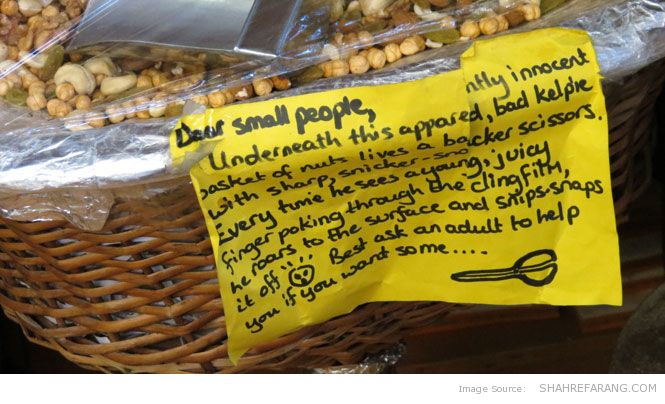 Dear small people,
Underneath this appared, ntly innocent
basket of nuts lives a bad kelpie
with sharp, snicker-sna backer scissors.
Every time he sees a young, juicy
finger poking through the clingfilm,
he roars to the surface and snips-snaps
it off!!! Best ask an adult to help
you if you want some....
Image Source: SHAHREFARANG.COM